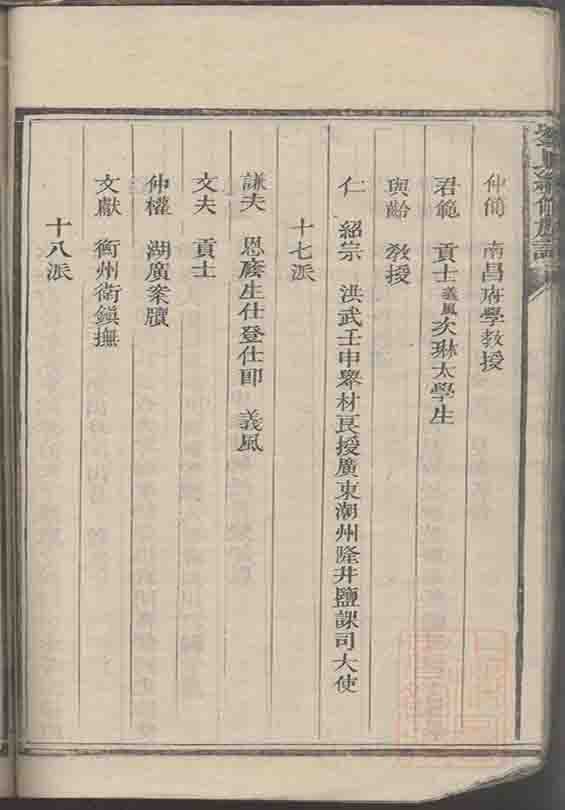 仲簡 南昌府學教授
君範 貢士義風次琳太學生
與齡 教授
仁 紹宗 洪武壬申舉材良授廣東潮州隆井鹽課司大使
十七派
謙夫 恩廕生仕登仕郎 義風
文夫 貢士
仲權 湖廣案牘
文獻 衢州衛鎮撫
十八派